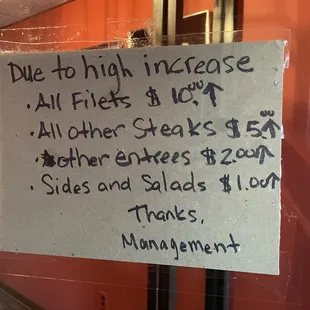 Due to high increase
· All Filets $ 10.00 ↑
· All other Steaks $ 5.00 ↑
· other entrees $ 2.00 ↑
· Sides and Salads $ 1.00 ↑
Thanks,
Management